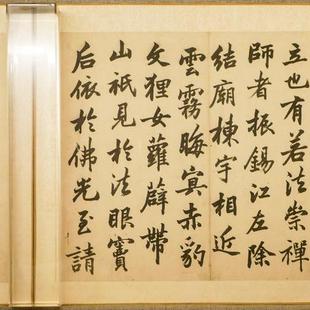 立也有若法崇禪
師者振錫江左除
結廟棟宇相近
雲霧晦冥赤豹
文狸女蘿薜帶
山祇見於法眼竇
后依於佛光至請